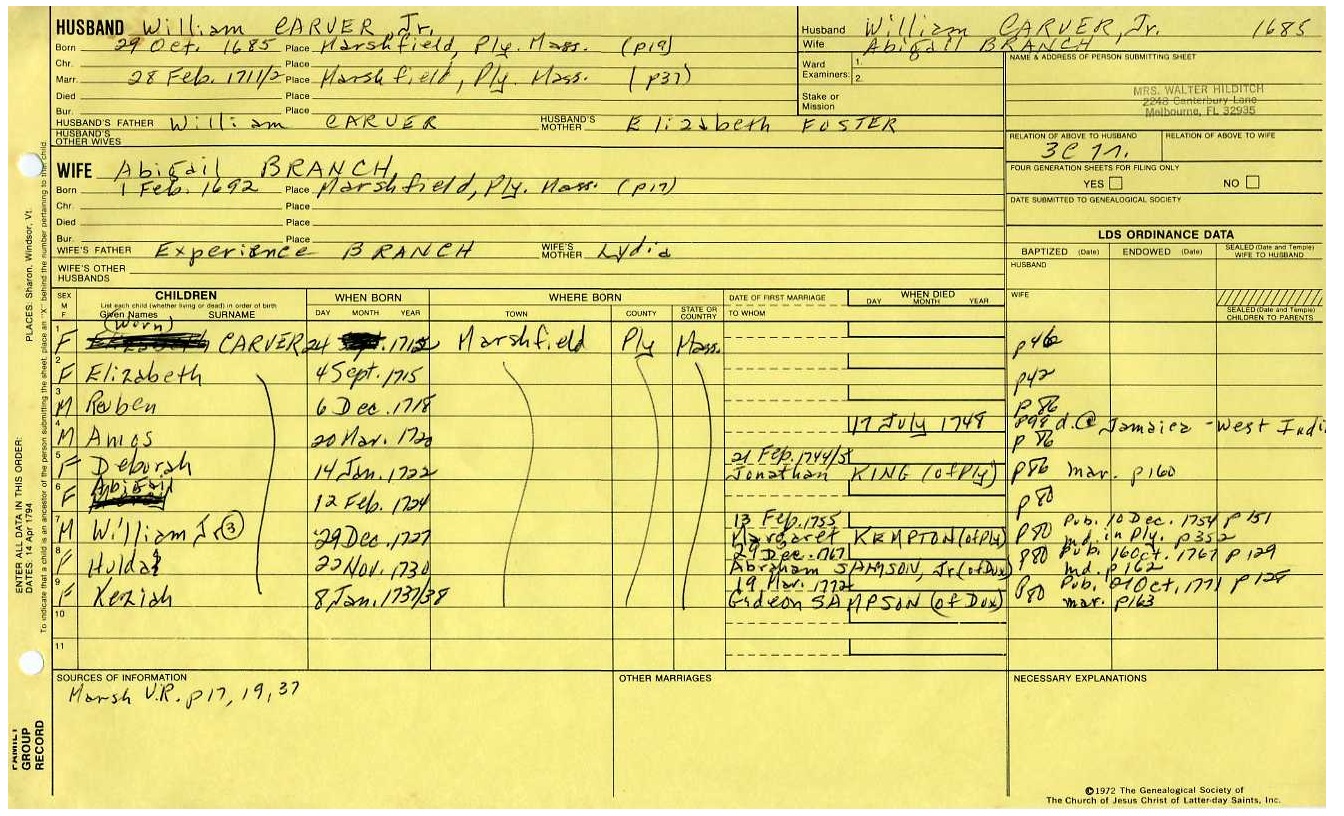 HUSBAND William CARVER Jr.
Born 29 Oct. 1685 Place Marshfield, Ply. Mass. (p19)
Chr. Place
Marr. 28 Feb. 1711/2 Place Marshfield, Ply. Mass. (p37)
Died Place
Bur. Place
HUSBAND'S FATHER William CARVER HUSBAND'S MOTHER Elizabeth FOSTER
HUSBAND'S OTHER WIVES
WIFE Abigail BRANCH
Born 1 Feb. 1692 Place Marshfield, Ply. Mass. (p17)
Chr. Place
Died Place
Bur. Place
WIFE'S FATHER Experience BRANCH WIFE'S MOTHER Lydia
WIFE'S OTHER HUSBANDS
Husband William CARVER, Jr. 1685
Wife Abigail BRANCH
Ward Examiners: 1. 2.
Stake or Mission
NAME & ADDRESS OF PERSON SUBMITTING SHEET
MRS. WALTER HILDITCH
2248 Canterbury Lane
Melbourne, FL 32935
RELATION OF ABOVE TO HUSBAND RELATION OF ABOVE TO WIFE
FOUR GENERATION SHEETS FOR FILING ONLY
YES NO
DATE SUBMITTED TO GENEALOGICAL SOCIETY
LDS ORDINANCE DATA
BAPTIZED (Date) ENDOWED (Date) SEALED (Date and Temple) WIFE TO HUSBAND
HUSBAND
WIFE
SEALED (Date and Temple) CHILDREN TO PARENTS
SEX M F CHILDREN WHEN BORN WHERE BORN DATE OF FIRST MARRIAGE WHEN DIED
List each child (whether living or dead) in order of birth
Given Names SURNAME DAY MONTH YEAR TOWN COUNTY STATE OR COUNTRY TO WHOM DAY MONTH YEAR
1 F CARVER 24 Marshfield Ply Mass.
2 F Elizabeth 4 Sept. 1715 p42
3 M Reuben 6 Dec. 1718 p86
4 M Amos 20 Mar. 1720 17 July 1748 p99 d.@ Jamaica - West Indi
p86
5 F Deborah 14 Jan. 1722 21 Feb. 1744/5 Jonathan KING (of Ply) p86 mar. p160
6 F Abigail 12 Feb. 1724 p80
7 M William Jr (3) 29 Dec. 1727 13 Feb. 1755 Margaret KEMPTON (of Ply) p80 Pub. 10 Dec. 1754 p151
md. in Ply. p352
8 F Hulda 22 Nov. 1730 29 Dec. 1767 Abraham SAMSON, Jr (of Dux) p80 Pub. 16 Oct. 1767 p129
md. p162
9 F Keziah 8 Jan. 1737/38 19 Mar. 1772 Gideon SAMPSON (of Dux) p80 Pub. 21 Oct. 1771 p129
mar. p163
10
11
SOURCES OF INFORMATION OTHER MARRIAGES NECESSARY EXPLANATIONS
Marsh V.R. p17, 19, 37
©1972 The Genealogical Society of
The Church of Jesus Christ of Latter-day Saints, Inc.
ENTER ALL DATA IN THIS ORDER:
DATES: 14 Apr 1794 PLACES: Sharon, Windsor, Vt.
To indicate that a child is an ancestor of the person submitting the sheet, place an "X" behind the number pertaining to that child.
FAMILY GROUP RECORD